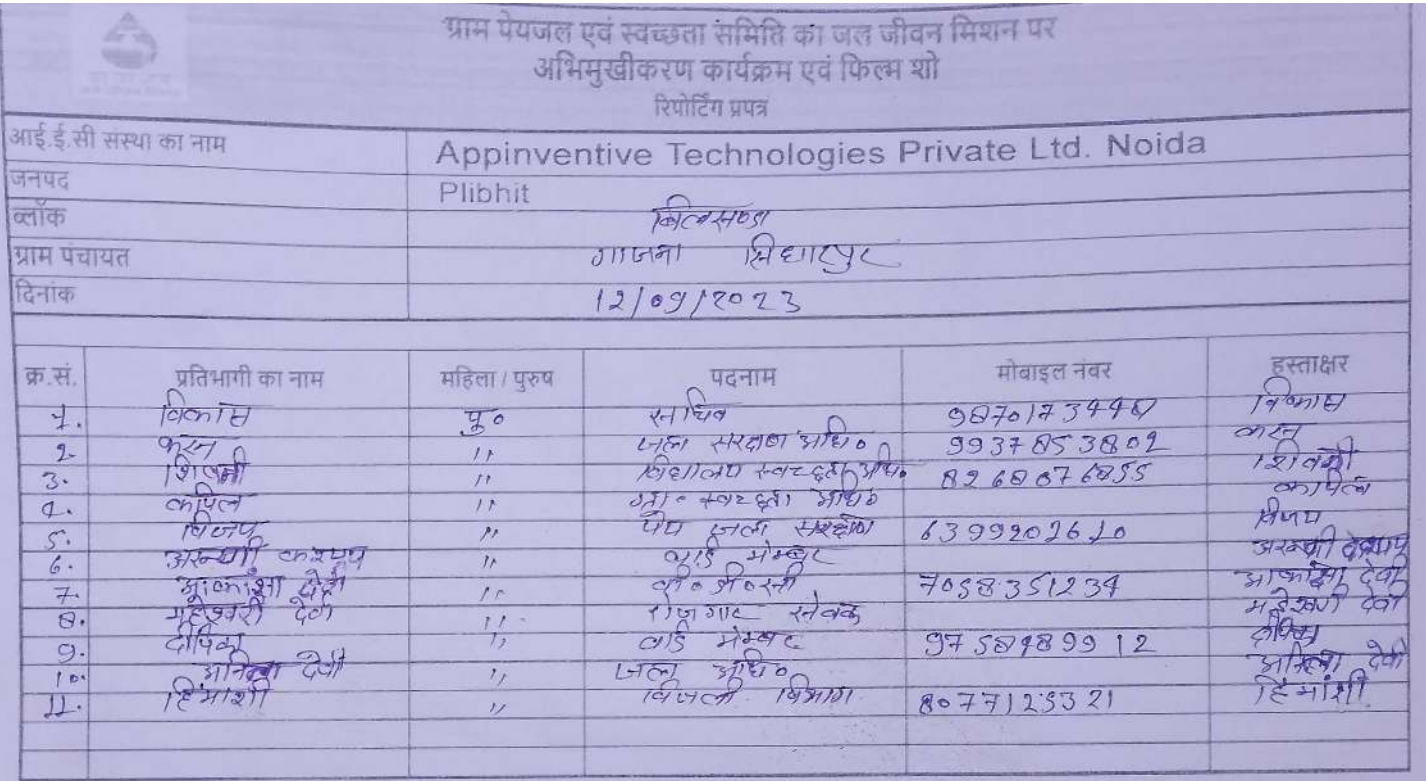 ग्राम पेयजल एवं स्वच्छता समिति का जल जीवन मिशन पर
अभिमुखीकरण कार्यक्रम एवं फिल्म शो
रिपोर्टिंग प्रपत्र
आई.ई.सी संस्था का नाम Appinventive Technologies Private Ltd. Noida
जनपद Plibhit
ब्लॉक
ग्राम पंचायत गाजना
दिनांक 12/09/2023
क्र.सं. प्रतिभागी का नाम महिला / पुरुष पदनाम मोबाइल नंवर हस्ताक्षर
1. विकास पु० सचिव विकास
2. करन 〃 जल संरक्षण अधि० 9937853802 करन
3. 〃 विद्यालय स्वच्छता अधि०
4. कपिल 〃 स्वच्छता अधि० कपिल
5. विजय 〃 पेय जल संरक्षण 6399202610 विजय
6. 〃 वार्ड मेम्बर
7. देवी 〃 7058351234 देवी
8. महेश्वरी देवी 〃 रोजगार सेवक महेश्वरी देवी
9. दीपिका 〃 वार्ड मेम्बर दीपिका
10. देवी 〃 जल अधि० देवी
11. हिमांशी 〃 बिजली विभाग 8077125321 हिमांशी